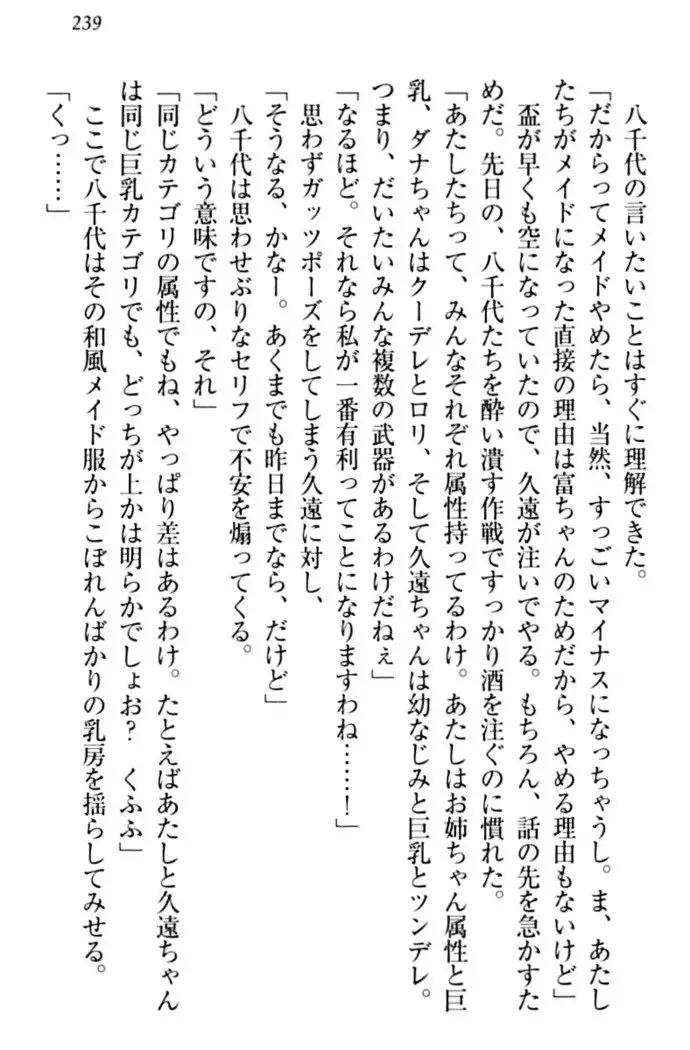 239
八千代の言いたいことはすぐに理解できた。
「だからってメイドやめたら、当然、すっごいマイナスになっちゃうし。ま、あたし
たちがメイドになった直接の理由は富ちゃんのためだから、やめる理由もないけど」
盃が早くも空になっていたので、久遠が注いでやる。もちろん、話の先を急かすた
めだ。先日の、八千代たちを酔い潰す作戦ですっかり酒を注ぐのに慣れた。
「あたしたちって、みんなそれぞれ属性持ってるわけ。あたしはお姉ちゃん属性と巨
乳、ダナちゃんはクーデレとロリ、そして久遠ちゃんは幼なじみと巨乳とツンデレ。
つまり、だいたいみんな複数の武器があるわけだねぇ」
「なるほど。それなら私が一番有利ってことになりますわね……！」
思わずガッツポーズをしてしまう久遠に対し、
「そうなる、かなー。あくまでも昨日までなら、だけど」
八千代は思わせぶりなセリフで不安を煽ってくる。
「どういう意味ですの、それ」
「同じカテゴリの属性でもね、やっぱり差はあるわけ。たとえばあたしと久遠ちゃん
は同じ巨乳カテゴリでも、どっちが上かは明らかでしょお？　くふふ」
ここで八千代はその和風メイド服からこぼれんばかりの乳房を揺らしてみせる。
「くっ……」